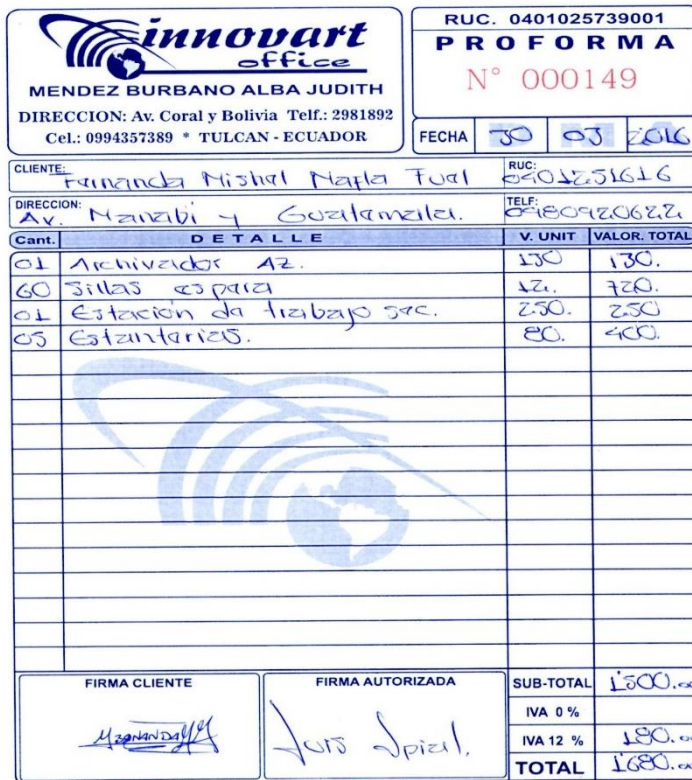 innovart
office
MENDEZ BURBANO ALBA JUDITH
DIRECCION: Av. Coral y Bolivia Telf.: 2981892
Cel.: 0994357389 * TULCAN - ECUADOR
RUC. 0401025739001
PROFORMA
N° 000149
FECHA 30 03 2016
CLIENTE: Fernanda Mishel Mafla Fuel RUC: 0401251616
DIRECCION: Av. Manabi y Guatemala. TELF: 0980920622
Cant. DETALLE V. UNIT VALOR. TOTAL
01 Archivador AZ. 130 130.
60 Sillas espera 12. 720.
01 Estación de trabajo sec. 250. 250
05 Estanterias. 80. 400.
FIRMA CLIENTE
FIRMA AUTORIZADA
Luis
SUB-TOTAL 1500.00
IVA 0 %
IVA 12 % 180.00
TOTAL 1680.00